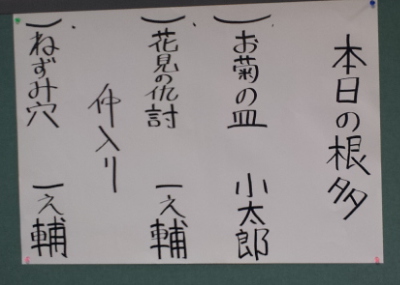 本日の根多
一、お菊の皿 小太郎
一、花見の仇討 一之輔
仲入り
一、ねずみ穴 一之輔